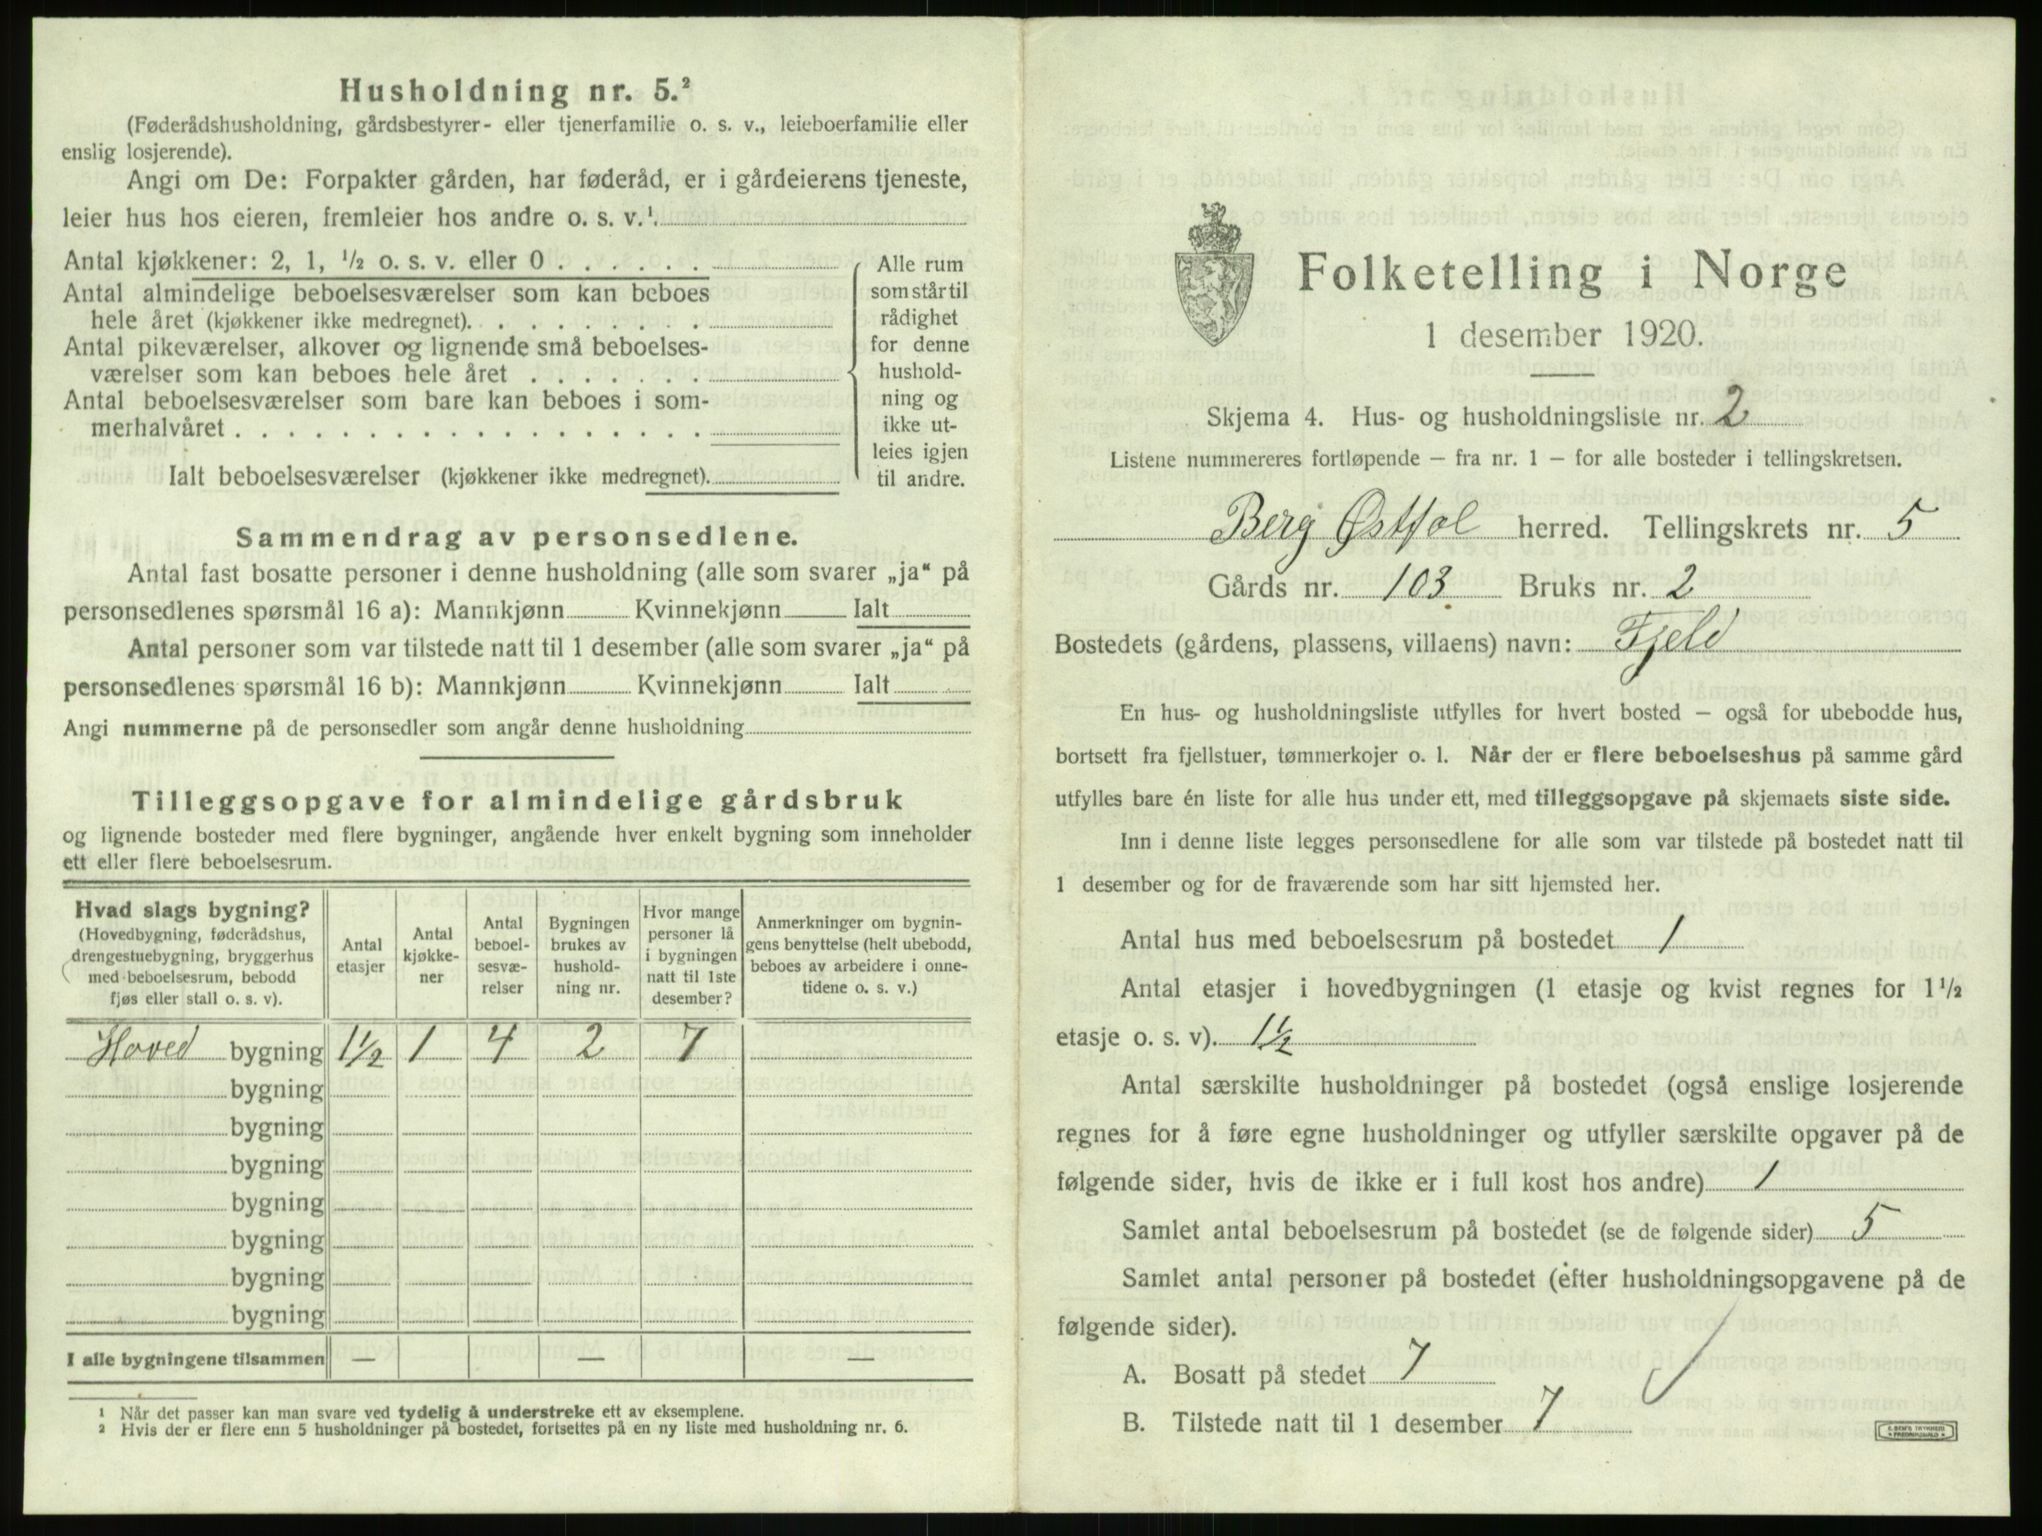 Husholdning nr. 5.²
(Føderådshusholdning, gårdsbestyrer- eller tjenerfamilie o. s. v., leieboerfamilie eller
enslig losjerende).
Angi om De: Forpakter gården, har føderåd, er i gårdeierens tjeneste,
leier hus hos eieren, fremleier hos andre o. s. v.¹.
Antal kjøkkener: 2, 1, ½ o. s. v. eller 0 . . . . . .
Antal almindelige beboelsesværelser som kan beboes
hele året (kjøkkener ikke medregnet). . . . . . . . .
Antal pikeværelser, alkover og lignende små beboelses-
værelser som kan beboes hele året . . . . . . .
Antal beboelsesværelser som bare kan beboes i som-
merhalvåret . . . . . . . . . . . . . . . . . .
Ialt beboelsesværelser (kjøkkener ikke medregnet).
Alle rum
som står til
rådighet
for denne
hushold-
ning og
ikke ut-
leies igjen
til andre.
Sammendrag av personsedlene.
Antal fast bosatte personer i denne husholdning (alle som svarer „ja“ på
personsedlenes spørsmål 16 a): Mannkjønn Kvinnekjønn Ialt
Antal personer som var tilstede natt til 1 desember (alle som svarer „ja“ på
personsedlenes spørsmål 16 b): Mannkjønn Kvinnekjønn Ialt
Angi nummerne på de personsedler som angår denne husholdning
Tilleggsopgave for almindelige gårdsbruk
og lignende bosteder med flere bygninger, angående hver enkelt bygning som inneholder
ett eller flere beboelsesrum.
Hvad slags bygning?
(Hovedbygning, føderådshus,
drengestuebygning, bryggerhus
med beboelsesrum, bebodd
fjøs eller stall o. s. v).
Antal
etasjer
Antal
kjøkke-
ner
Antal
beboel-
sesvæ-
relser
Bygningen
brukes av
hushold-
ning nr.
Hvor mange
personer lå
i bygningen
natt til 1ste
desember?
Anmerkninger om bygnin-
gens benyttelse (helt ubebodd,
beboes av arbeidere i onne-
tidene o. s. v.)
Hoved bygning 1½ 1 4 2 7
bygning
bygning
bygning
bygning
bygning
bygning
bygning
I alle bygningene tilsammen — — —
¹ Når det passer kan man svare ved tydelig å understreke ett av eksemplene.
² Hvis der er flere enn 5 husholdninger på bostedet, fortsettes på en ny liste med husholdning nr. 6.
Folketelling i Norge
1 desember 1920.
Skjema 4. Hus- og husholdningsliste nr. 2
Listene nummereres fortløpende — fra nr. 1 — for alle bosteder i tellingskretsen.
Berg Østfol herred. Tellingskrets nr. 5
Gårds nr. 103 Bruks nr. 2
Bostedets (gårdens, plassens, villaens) navn: Fjeld
En hus- og husholdningsliste utfylles for hvert bosted — også for ubebodde hus,
bortsett fra fjellstuer, tømmerkojer o. l. Når der er flere beboelseshus på samme gård
utfylles bare én liste for alle hus under ett, med tilleggsopgave på skjemaets siste side.
Inn i denne liste legges personsedlene for alle som var tilstede på bostedet natt til
1 desember og for de fraværende som har sitt hjemsted her.
Antal hus med beboelsesrum på bostedet 1
Antal etasjer i hovedbygningen (1 etasje og kvist regnes for 1½
etasje o. s. v). 1½
Antal særskilte husholdninger på bostedet (også enslige losjerende
regnes for å føre egne husholdninger og utfyller særskilte opgaver på de
følgende sider, hvis de ikke er i full kost hos andre) 1
Samlet antal beboelsesrum på bostedet (se de følgende sider) 5
Samlet antal personer på bostedet (efter husholdningsopgavene på de
følgende sider).
A. Bosatt på stedet 7
B. Tilstede natt til 1 desember 7